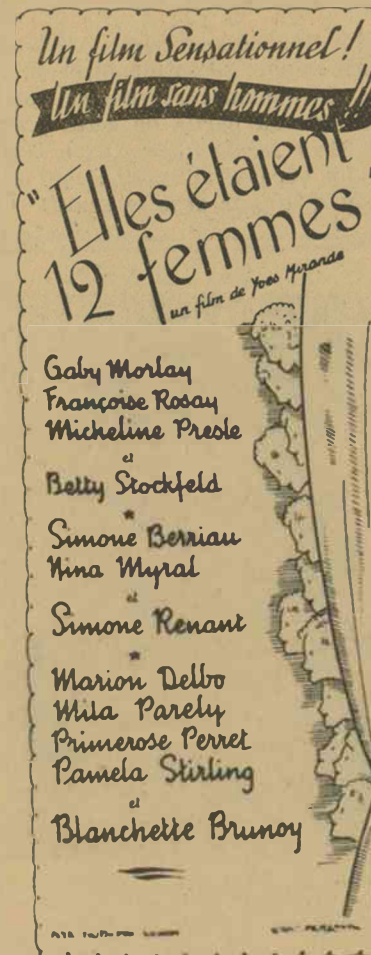 Un film Sensationnel !
Un film sans hommes !!
"Elles étaient
12 femmes"
un film de Yves Mirande
Gaby Morlay
Françoise Rosay
Micheline Presle
et
Betty Stockfeld
*
Simone Berriau
Nina Myral
et
Simone Renant
*
Marion Delbo
Mila Parely
Primerose Perret
Pamela Stirling
et
Blanchette Brunoy